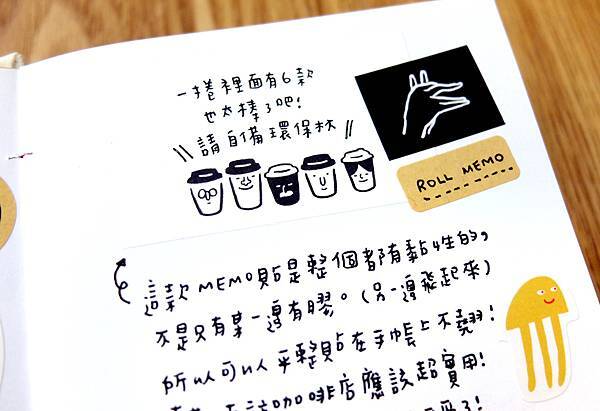 一捲裡面有6款
也太棒了吧!
\\ 請自備環保杯 //
ROLL MEMO
這款MEMO貼是整個都有黏性的,
不是只有某一邊有膠。(另一邊飛起來)
所以可以平整貼在手帳上不亂翹!
咖啡店應該超實用!